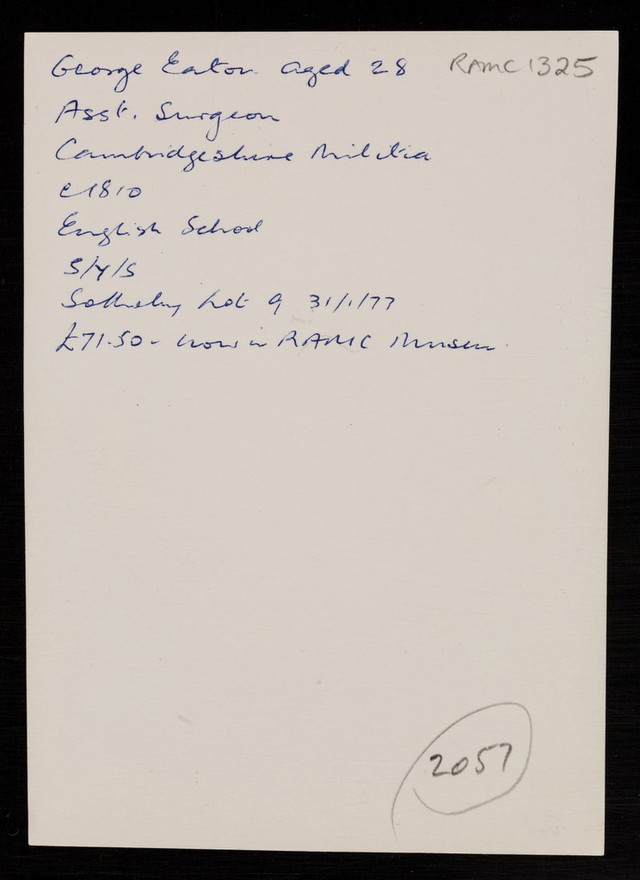 George Eaton aged 28 RAMC 1325
Asst. Surgeon
Cambridgeshire Militia
c1810
English School
S/Y/S
Sotheby Lot 9 31/1/77
£71.50 - now in RAMC Museum
2057